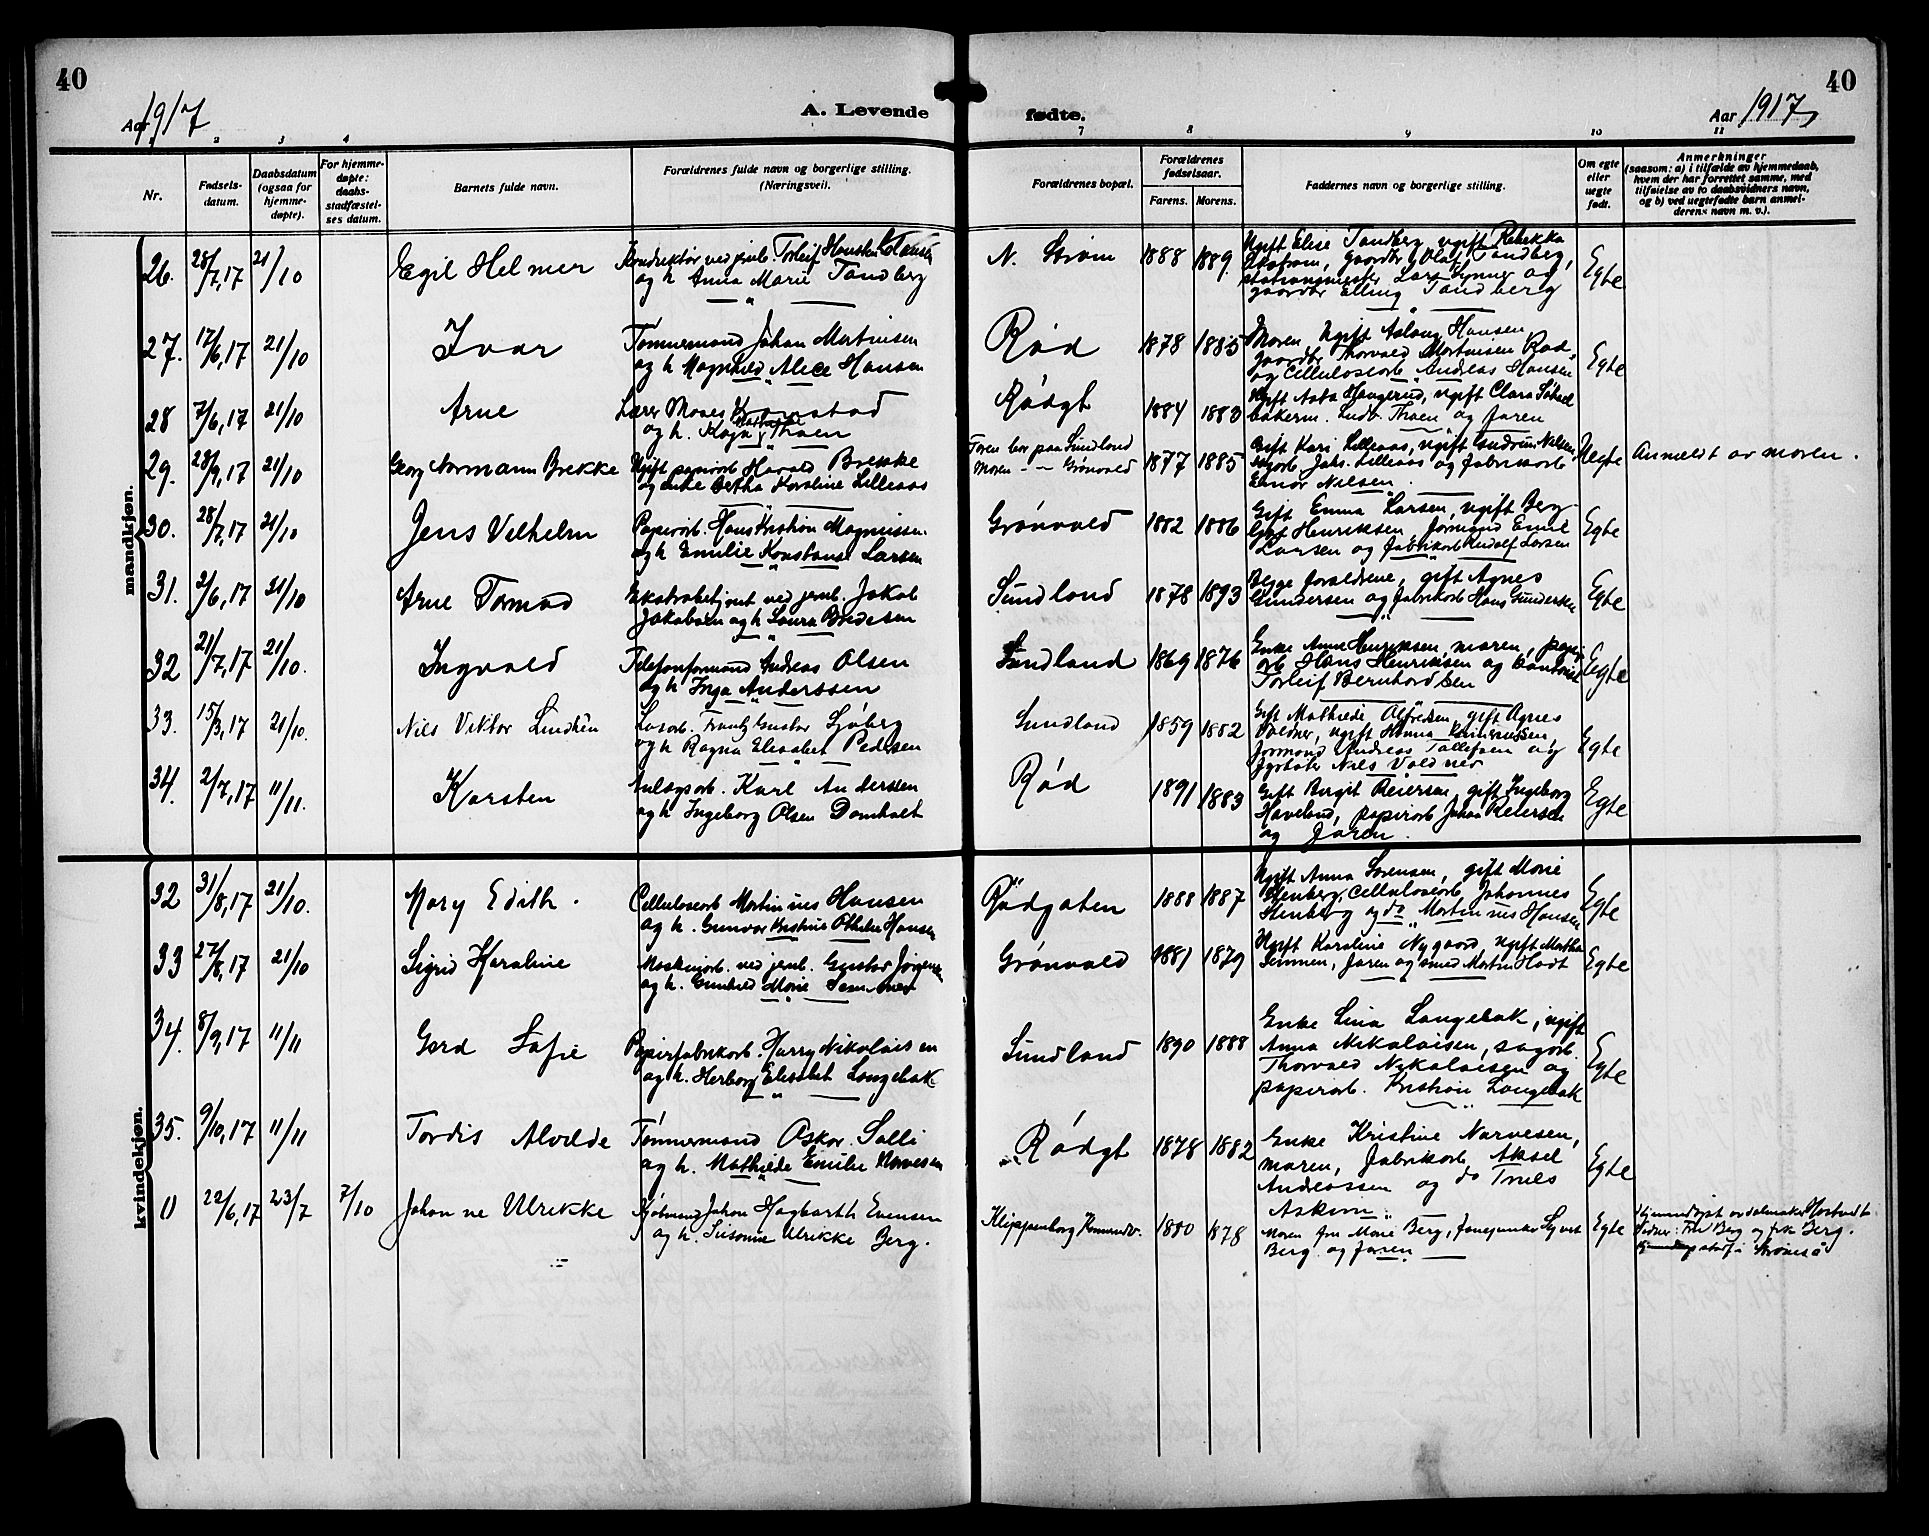 40
40
Aar 1917
A. Levende
fødte.
Aar 1917
2 3 4 7 8 9 10 11
Nr.
Fødsels-
datum.
Daabsdatum
(ogsaa for
hjemme-
døpte).
For hjemme-
døpte:
daabs-
stadfæstel-
ses datum.
Barnets fulde navn.
Forældrenes fulde navn og borgerlige stilling.
(Næringsvei).
Forældrenes bopæl.
Forældrenes
fødselsaar.
Farens. Morens.
Faddernes navn og borgerlige stilling.
Om egte
eller
uegte
født.
Anmerkninger
(saasom: a) i tilfælde av hjemmedaab,
hvem der har forrettet samme, med
tilføielse av to daabsvidners navn,
og b) ved uegtefødte barn anmel-
derens navn m. v.).
mandkjøn.
26. 28/7,17 21/10 Egil Helmer
Konduktør ved jernb. Torleif
og h. Anna Marie Tandberg
N. Strøm 1888 1889
Ugift Elise Tandberg, ugift Rebekka
gaardbr Olaf Tandberg,
stationsmester Lars og
gaardbr Elling Tandberg
Egte
27. 12/6,17 21/10 Ivar
Tømmermand Johan Martinsen
og h Magnhild Alice Hansen
Rød 1878 1885
Moren Ugift Aslaug Hansen
gaardbr Thorvald Martinsen Rød,
og Celluloseorb Andreas Hansen
Egte
28 7/6,17 21/10 Arne
Lærer Moses
og h. Thoen
Rødgt 1884 1883
Ugift Aasta Haugerud, ugift Clara
bakerm. Ludv Thoen og faren
29. 28/9,17 21/10 Georg Normann Brekke
Ugift papirarb Harald Brekke
og enke Bertha Karoline Lilleaas
Faren bor paa Sundland
Moren - - Grønvold
1877 1885
Gift Kari Lilleaas, ugift Gudrun Nilsen,
Johs. Lilleaas og fabrikarb
Einar Nilsen.
Uegte Anmeldt av moren.
30. 28/7,17 21/10 Jens Vilhelm
Papirarb. Hans Kristian Magnussen
og h Emilie Konstanse Larsen
Grønvold 1882 1886
Gift Emma Larsen, ugift Berg
Henriksen, formand Emil
Larsen og fabrikarb Rudolf Larsen
Egte
31. 2/6,17 21/10 Arne Tormod
Ekstrabetjent ved jernb. Jakob
Jakobsen og h Laura Bredesen
Sundland 1878 1893
Begge forældrene, gift Agnes
Gundersen og fabrikarb Hans Gundersen
Egte
32 21/7,17 21/10. Ingvald
Telefonformand Andreas Olsen
og h Inga Anderssen
Sundland 1869 1876
Enke Anne Henriksen, moren, papir
arb Hans Henriksen og kontorist
Torleif Bernhardsen
Egte
33. 15/3,17 21/10. Nils Viktor Lindhén
Løsarb. Frantz Gustav Sjöberg
og h Ragna Elisabet Pedersen
Sundland 1859 1882
Gift Mathilde Alfredsen, gift Agnes
Voldner, ugift Hanna
formand Andreas Tollefsen og
fyrbøter Nils Voldner
Egte
34. 2/7,17 11/11. Karsten
Anlægsarb. Karl Anderssen
og h Ingeborg Olsen Domholt
Rød 1891 1883
Gift Birgit Reiersen, gift Ingeborg
Haveland, papirarb Johan Reiersen
og faren.
Egte
kvindekjøn.
32 31/8,17 21/10. Mary Edith.
Celluloseorb Martinius Hansen
og h. Gunvor Kristine Othelie Hansen
Rødgaten 1888 1887
Ugift Anna Sørensen, gift Marie
Stenberg, Celluloseorb Johannes
Stenberg og do Martinius Hansen
Egte
33 27/8,17 21/10 Sigrid Karoline
Maskinarb. ved jernb. Gustav
og h. Gunhild Marie
Grønvold 1881 1879
Ugift Karoline Nygaard, ugift Martha
faren og smed Martin Hødt
Egte
34. 8/9,17 11/11 Gerd Sofie
Papirfabrikarb. Harry Nikolaisen
og h. Herborg Elisabet Langebak
Sundland 1890 1888
Enke Lina Langebak, ugift
Anna Nikolaisen, sagarb.
Thorvald Nikolaisen og
papirarb. Kristian Langebak
Egte
35. 9/10,17 11/11 Tordis Alvilde
Tømmermand Oskar Solli
og h. Mathilde Emilie Narvesen
Rødgt 1878 1882
Enke Kristine Narvesen,
moren, fabrikarb Aksel
Andreassen og do Truls
Askim.
Egte
11 22/6,17 23/7 7/10 Johanne Ulrikke
Kjøbmand Johan Hagbarth Evensen
og h. Susanne Ulrikke Berg.
Klippenborg 1880 1878
Moren frn Marie Berg,
Berg og faren
Egte
Hjemmedøpt av
Vidner: Fru Berg og frk Berg.
Strømsø